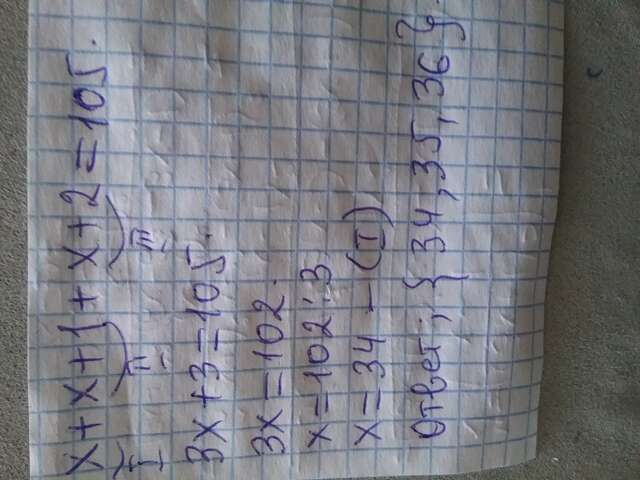 x+x+1+x+2=105.
I II III
3x+3=105.
3x=102.
x=102:3
x=34 – (I)
Ответ; {34, 35, 36}.